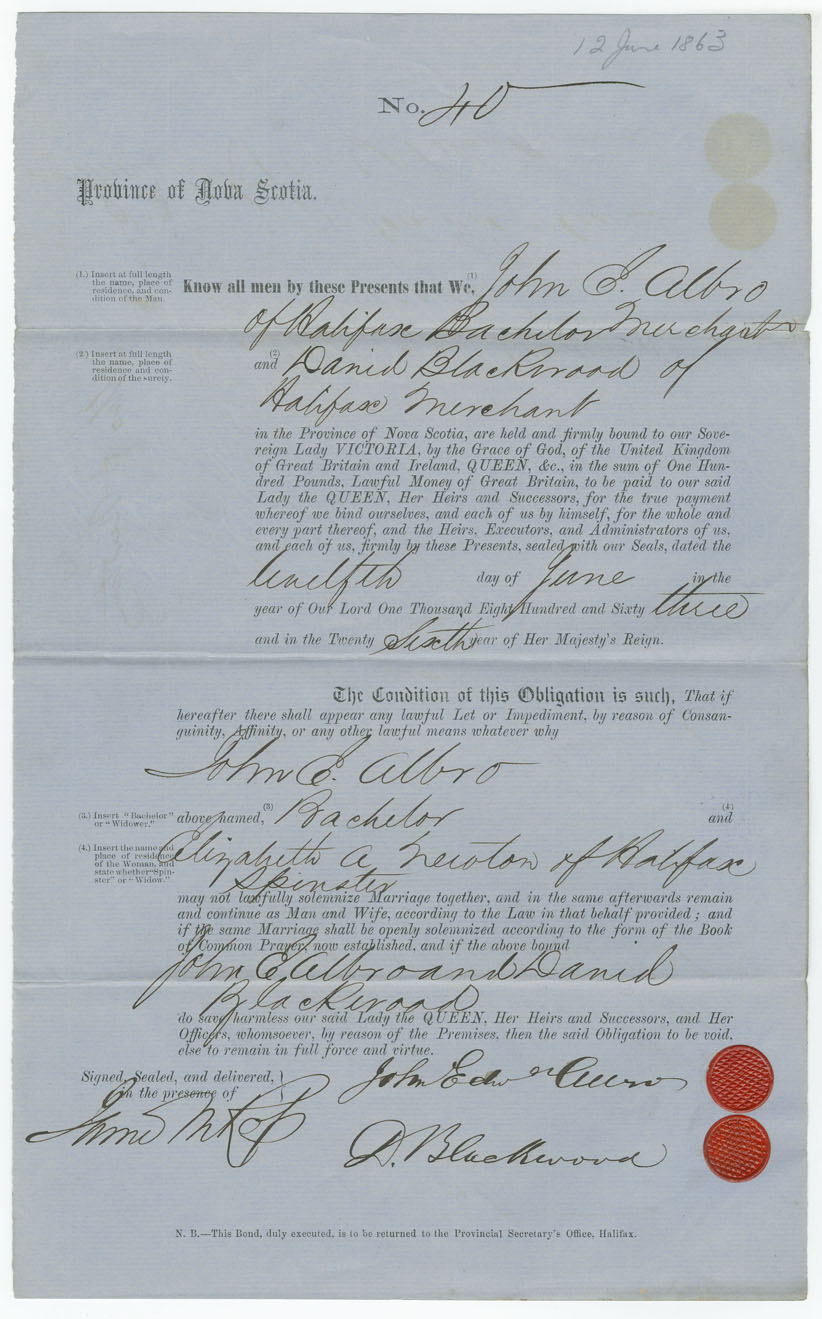 12 June 1863
No. 40
Province of Nova Scotia.
(1.) Insert at full length
the name, place of
residence, and con-
dition of the Man.
Know all men by these Presents that We, (1) John E. Albro
of Halifax Bachelor Merchant
(2) Insert at full length
the name, place of
residence and con-
dition of the surety.
and (2) David Blackwood of
Halifax Merchant
in the Province of Nova Scotia, are held and firmly bound to our Sove-
reign Lady VICTORIA, by the Grace of God, of the United Kingdom
of Great Britain and Ireland, QUEEN, &c., in the sum of One Hun-
dred Pounds, Lawful Money of Great Britain, to be paid to our said
Lady the QUEEN, Her Heirs and Successors, for the true payment
whereof we bind ourselves, and each of us by himself, for the whole and
every part thereof, and the Heirs, Executors, and Administrators of us,
and each of us, firmly by these Presents, sealed with our Seals, dated the
twelfth day of June in the
year of Our Lord One Thousand Eight Hundred and Sixty three
and in the Twenty Sixth year of Her Majesty's Reign.
The Condition of this Obligation is such, That if
hereafter there shall appear any lawful Let or Impediment, by reason of Consan-
guinity, Affinity, or any other lawful means whatever why
John E. Albro
(3.) Insert "Bachelor"
or "Widower."
above named, (3) Bachelor (4) and
(4.) Insert the name and
place of residence
of the Woman, and
state whether "Spin-
ster" or "Widow."
Elizabeth A Newton of Halifax
Spinster
may not lawfully solemnize Marriage together, and in the same afterwards remain
and continue as Man and Wife, according to the Law in that behalf provided; and
if the same Marriage shall be openly solemnized according to the form of the Book
of Common Prayer, now established, and if the above bound
John E Albro and David
Blackwood
do save harmless our said Lady the QUEEN, Her Heirs and Successors, and Her
Officers, whomsoever, by reason of the Premises, then the said Obligation to be void,
else to remain in full force and virtue.
Signed, Sealed, and delivered,
in the presence of
John Edwr Albro
D. Blackwood
N. B.—This Bond, duly executed, is to be returned to the Provincial Secretary's Office, Halifax.